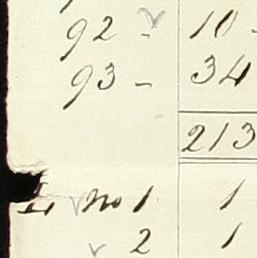 92 - 10 -
93 - 34
213
no 1 1
2 1